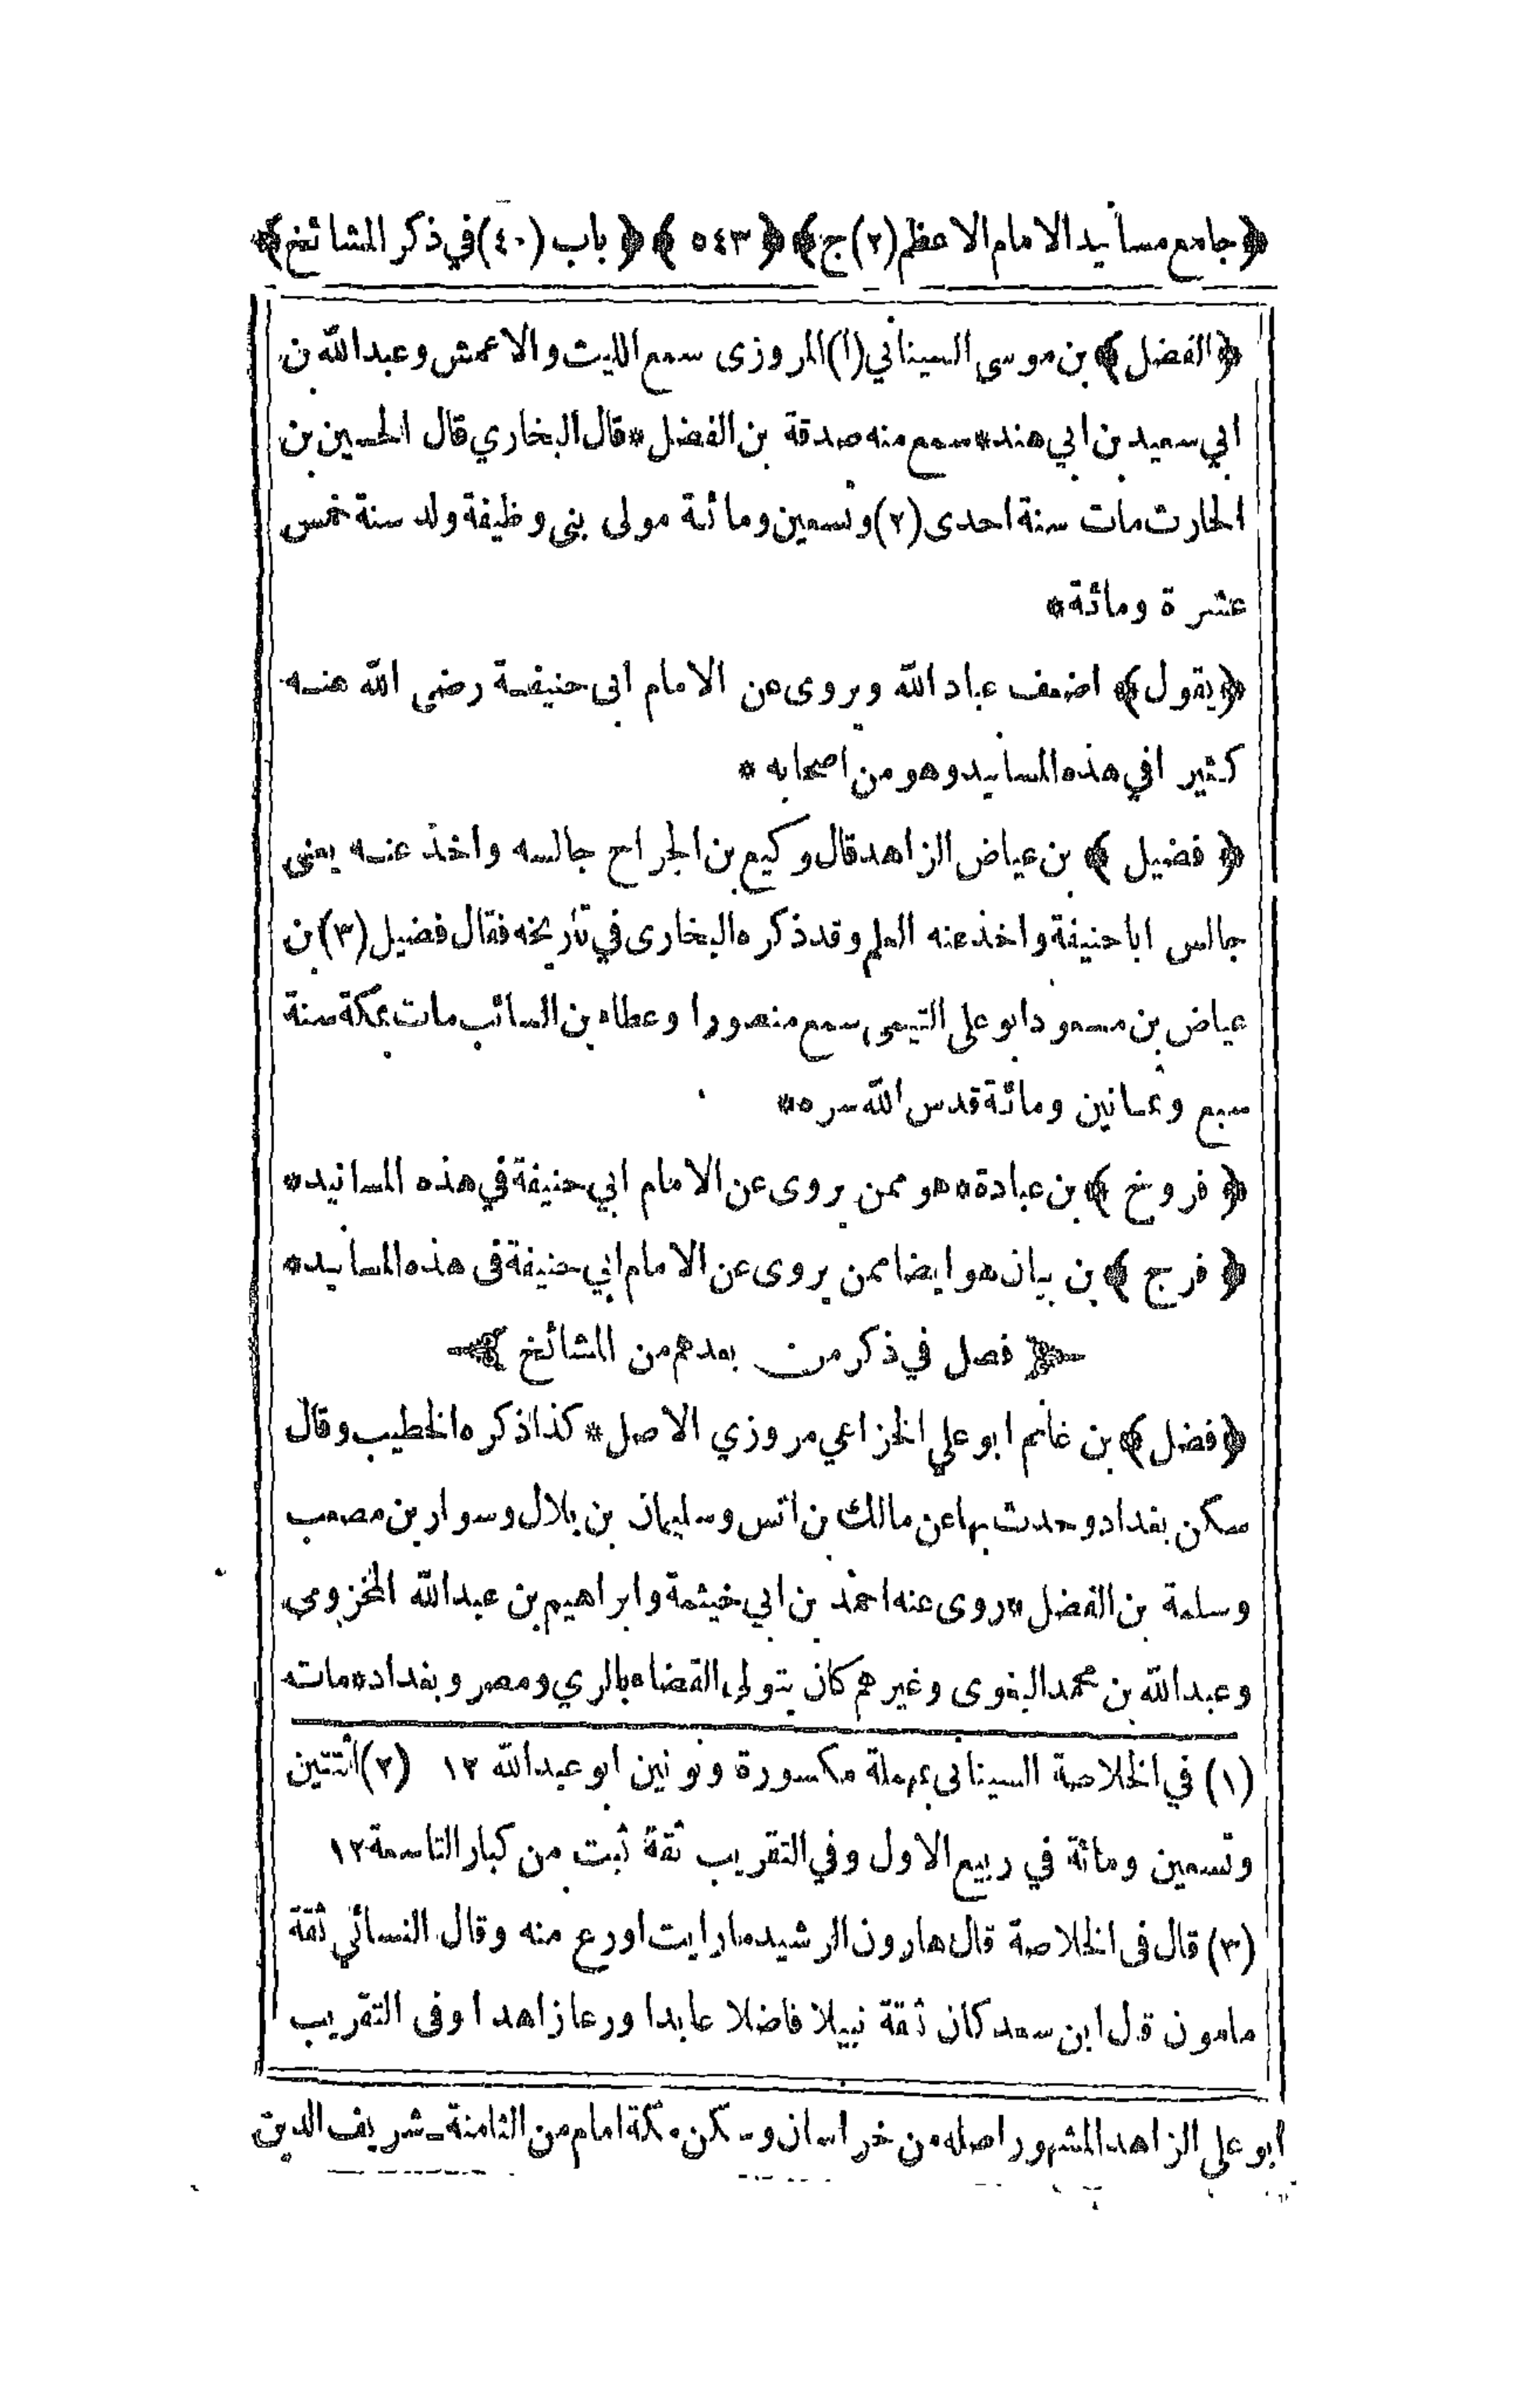 ﴿جامع مسانيد الامام الاعظم (٢) ج﴾ ﴿٥٤٣﴾ ﴿باب (٤٠) في ذكر المشائخ﴾
﴿الفضل﴾ بن موسى السيناني (١) المروزى سمع الليث والاعمش وعبدالله بن
ابي سعيد بن ابي هند * سمع منه صدقة بن الفضل * قال البخاري قال الحسين بن
الحارث مات سنة احدى (٢) وتسعين ومائة مولى بنى وظيفة ولد سنة خمس
عشرة ومائة *
﴿يقول﴾ اضعف عباد الله ويروى عن الامام ابى حنيفة رضى الله عنه
كثيرا في هذه المسانيد وهو من اصحابه *
﴿فضيل﴾ بن عياض الزاهد قال وكيع بن الجراح جالسه واخذ عنه يعنى
جالس اباحنيفة واخذ عنه العلم وقد ذكره البخارى في تأريخه فقال فضيل (٣) بن
عياض بن مسعود ابو على التيمى سمع منصورا وعطاء بن السائب مات بمكة سنة
سبع وثمانين ومائة قدس الله سره *
﴿فروخ﴾ بن عبادة * هو ممن يروى عن الامام ابي حنيفة في هذه المسانيد *
﴿فرج﴾ بن بيان هو ايضا ممن يروى عن الامام ابي حنيفة فى هذه المسانيد *
﴿فصل في ذكر من بعدهم من المشائخ﴾
﴿فضل﴾ بن غانم ابو علي الخزاعي مروزي الاصل * كذا ذكره الخطيب وقال
سكن بغداد وحدث بها عن مالك بن انس وسليمان بن بلال وسوار بن مصعب
وسلمة بن الفضل * روى عنه احمد بن ابي خيثمة وابراهيم بن عبدالله المخزومى
وعبدالله بن محمد البغوى وغيرهم كان يتولى القضاء بالري ومصر وبغداد * مات
(١) في الخلاصة السينانى بمهملة مكسورة ونونين ابو عبدالله ١٢ (٢) اثنتين
وتسعين ومائة في ربيع الاول وفي التقريب ثقة ثبت من كبار التاسعة ١٢
(٣) قال فى الخلاصة قال هارون الرشيد ما رايت اورع منه وقال النسائي ثقة
مامون قال ابن سعد كان ثقة نبيلا فاضلا عابدا ورعا زاهدا وفى التقريب
ابو على الزاهد المشهور اصله من خراسان وسكن مكة امام من الثامنة ـ شريف الدين